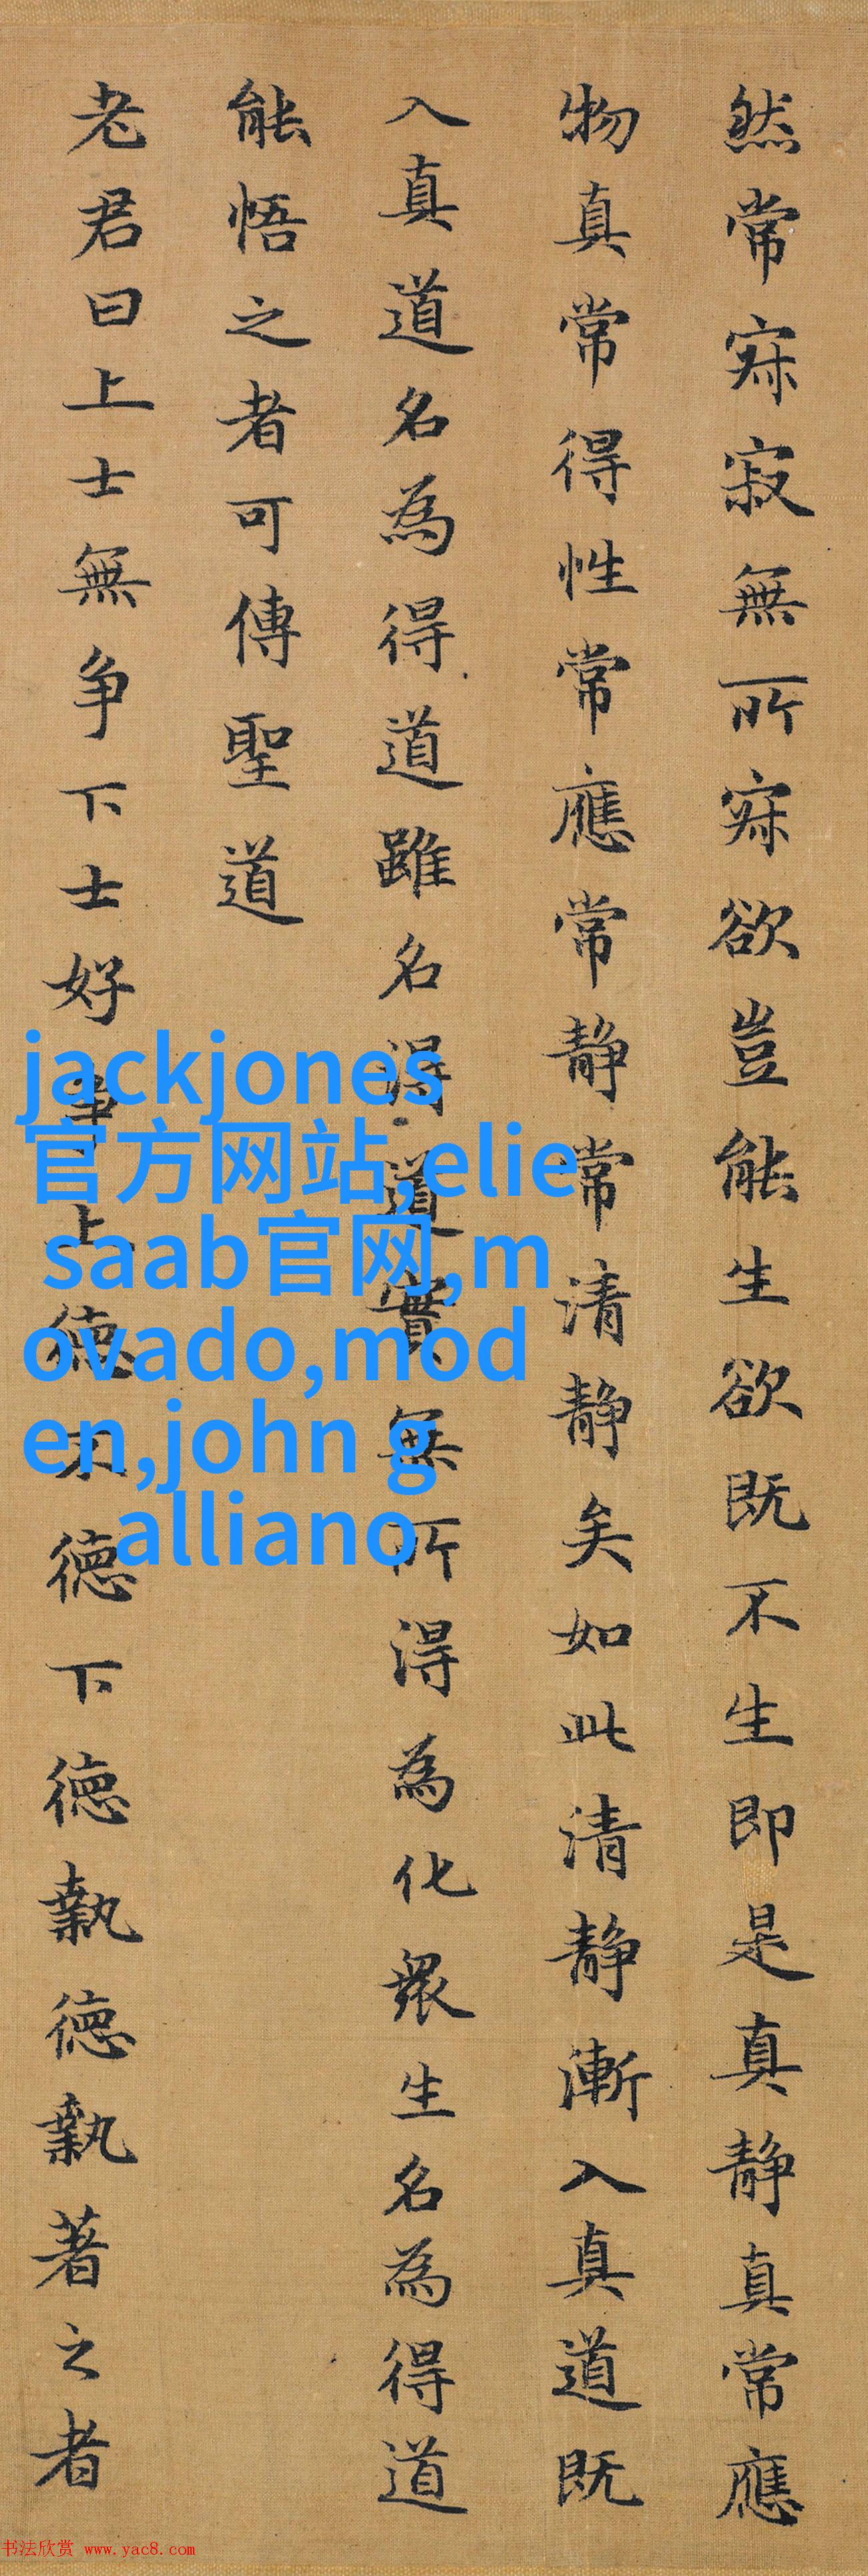 然常寂寂無所寂欲豈能生欲既不生即是真静真常應
物真常得性常應常静常清静矣如此清静漸入真道既
入真道名為得道雖名得道實無所得為化衆生名為得道
能悟之者可傳聖道
老君曰上士無争下士好争上德不德下德執德執著之者
jackjones
官方网站,elie
saab官网,m
ovado,mod
en,john g
alliano
书法欣赏 www.yac8.com